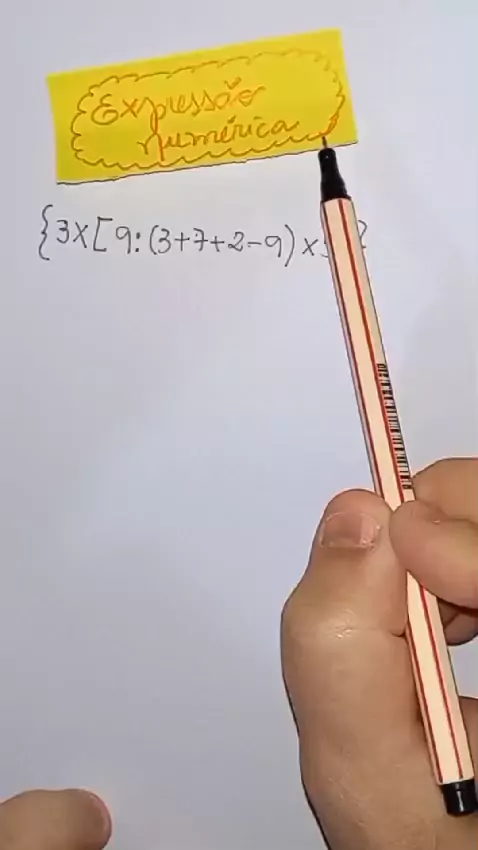 Expressão
numérica
{3x[9:(3+7+2-9)x